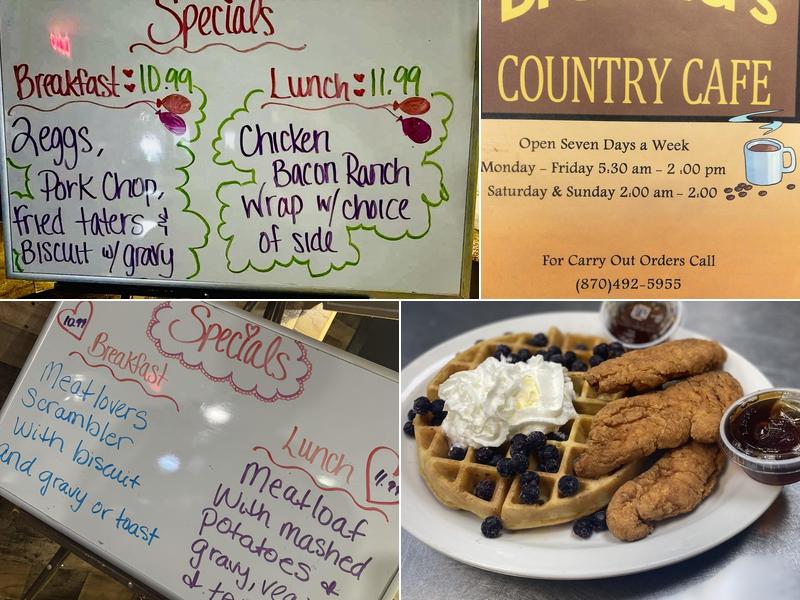 Specials
Breakfast 10.99
2eggs,
Pork Chop,
fried taters &
Biscuit w/gravy
Lunch 11.99
Chicken
Bacon Ranch
Wrap w/choice
of side
COUNTRY CAFE
Open Seven Days a Week
Monday - Friday 5:30 am - 2:00 pm
Saturday & Sunday 2:00 am - 2:00
For Carry Out Orders Call
(870)492-5955
10.99
Specials
Breakfast
Meatlovers
Scrambler
with biscuit
and gravy or toast
Lunch
11.99
Meatloaf
With mashed
potatoes &
gravy,
&